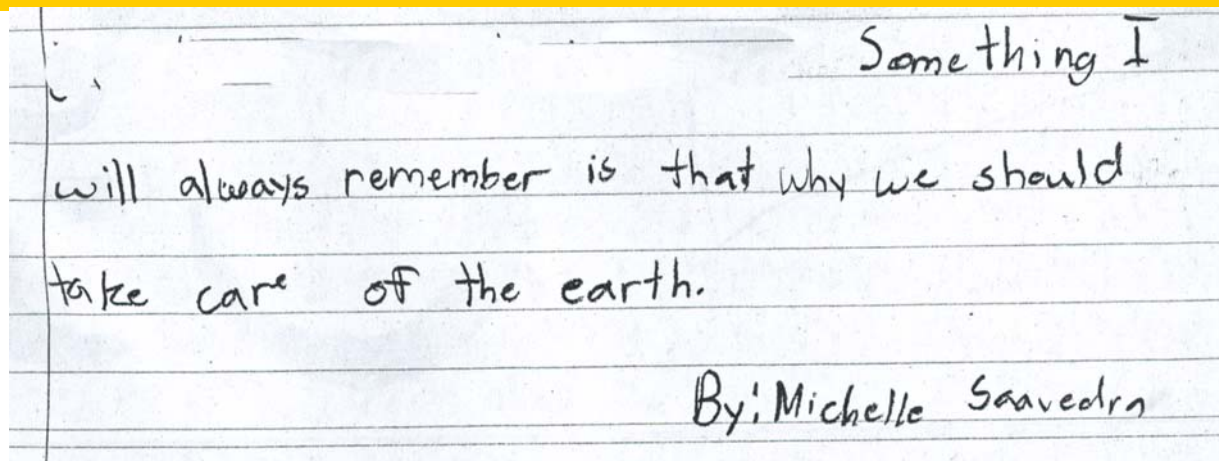 Something I
will always remember is that why we should
take care of the earth.
By: Michelle Saavedra